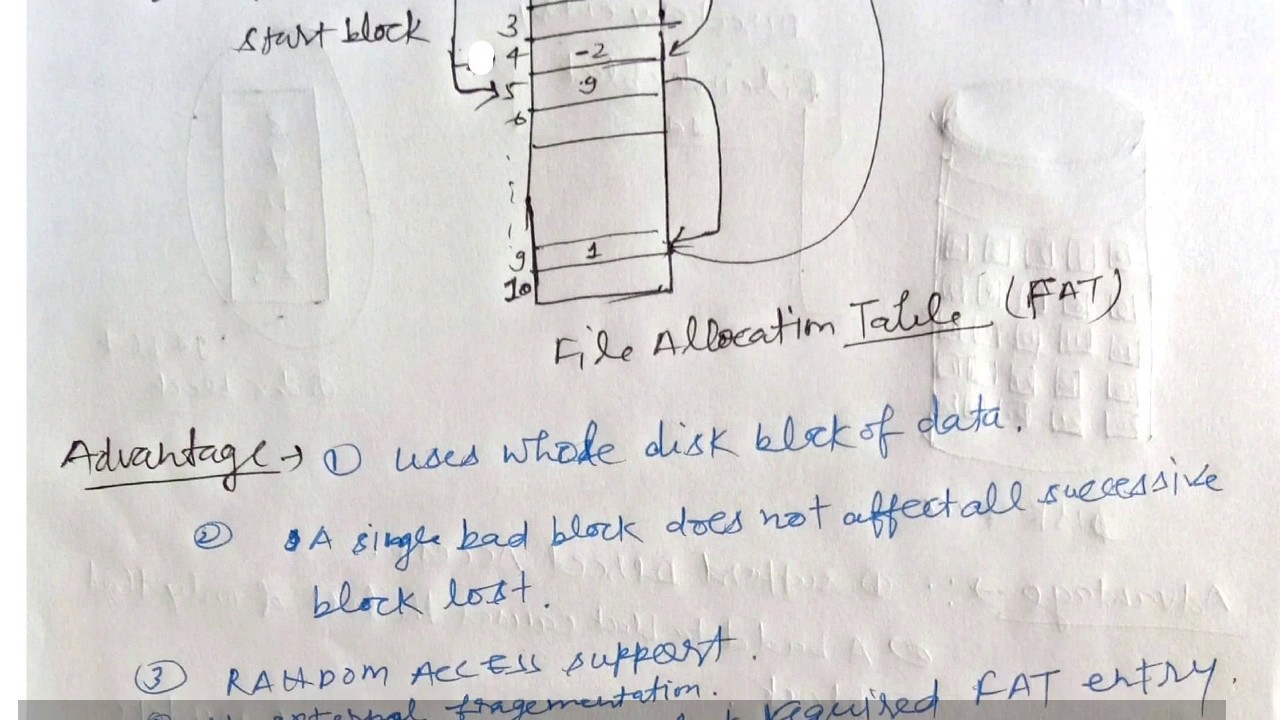 start block
3
4 -2
5 9
6
9 1
10
File Allocation Table (FAT)
Advantage → ① uses whole disk block of data.
② A single bad block does not affect all successive
block lost.
③ RANDOM ACCESS support.
fragementation.
required FAT entry.